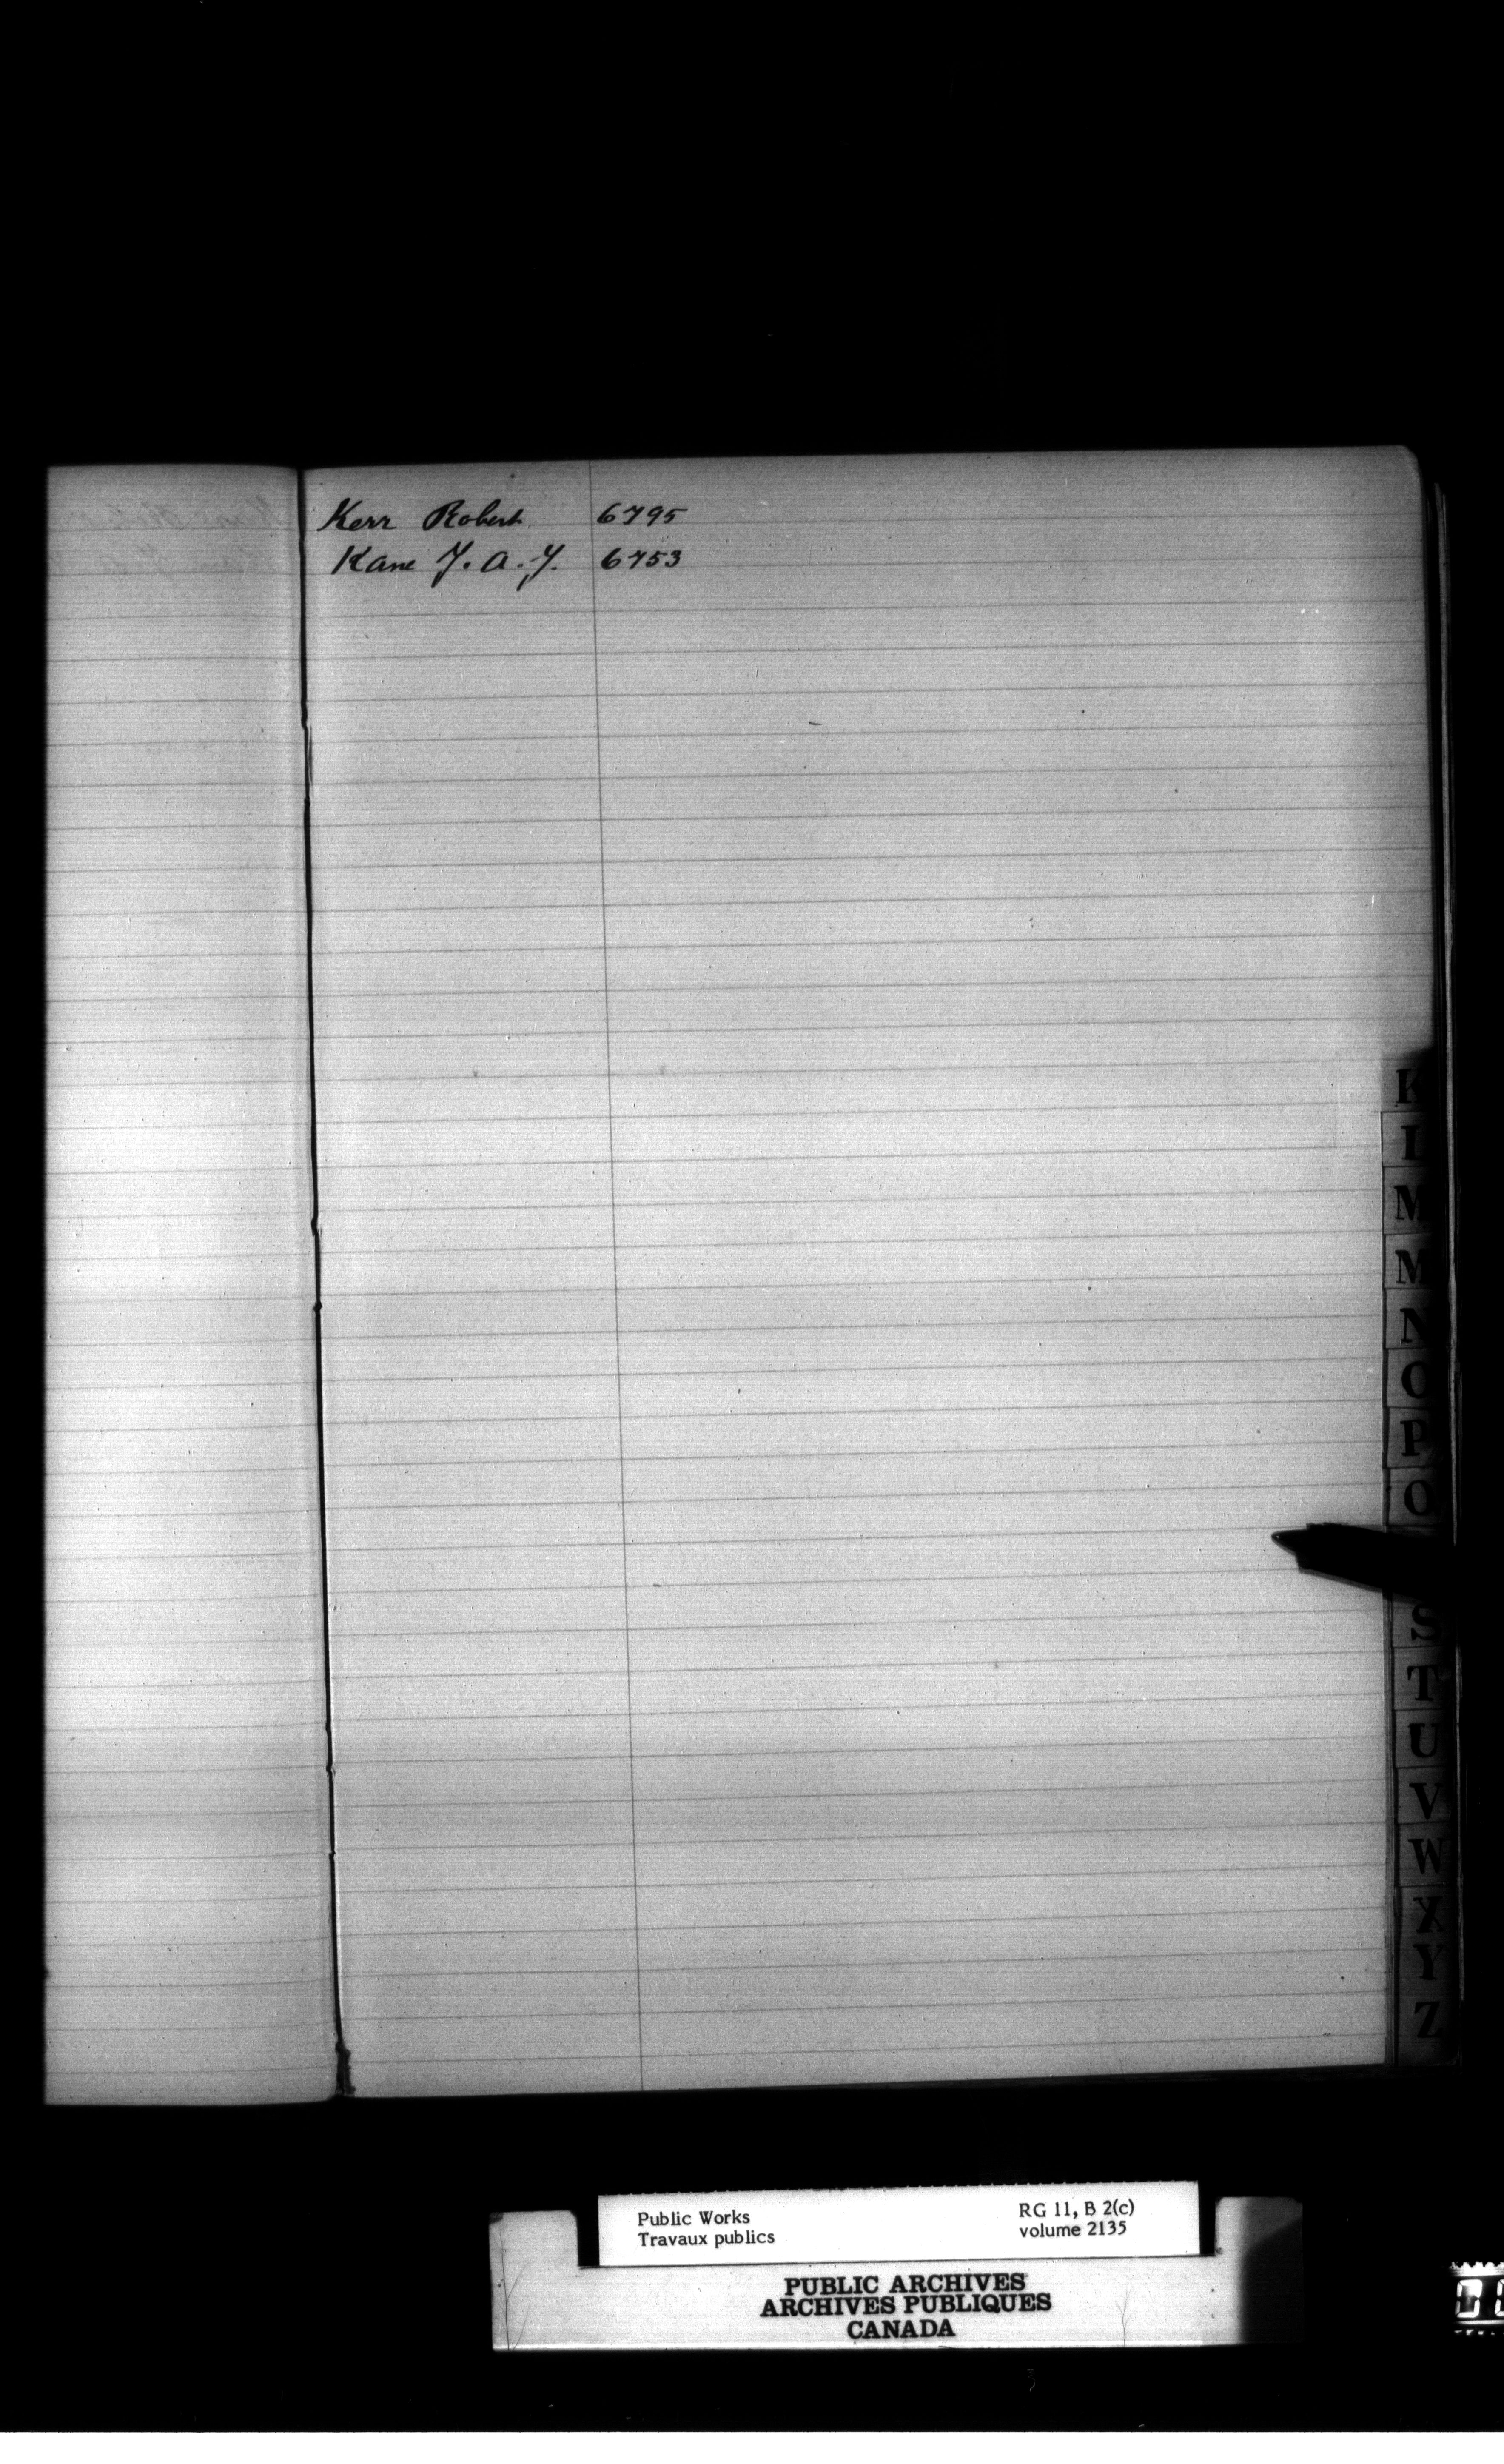 Kerr Robert 6795
Kane J. A. J. 6753
K
L
M
M
N
O
P
Q
S
T
U
V
W
X
Y
Z
Public Works
Travaux publics
RG 11, B 2(c)
volume 2135
PUBLIC ARCHIVES
ARCHIVES PUBLIQUES
CANADA